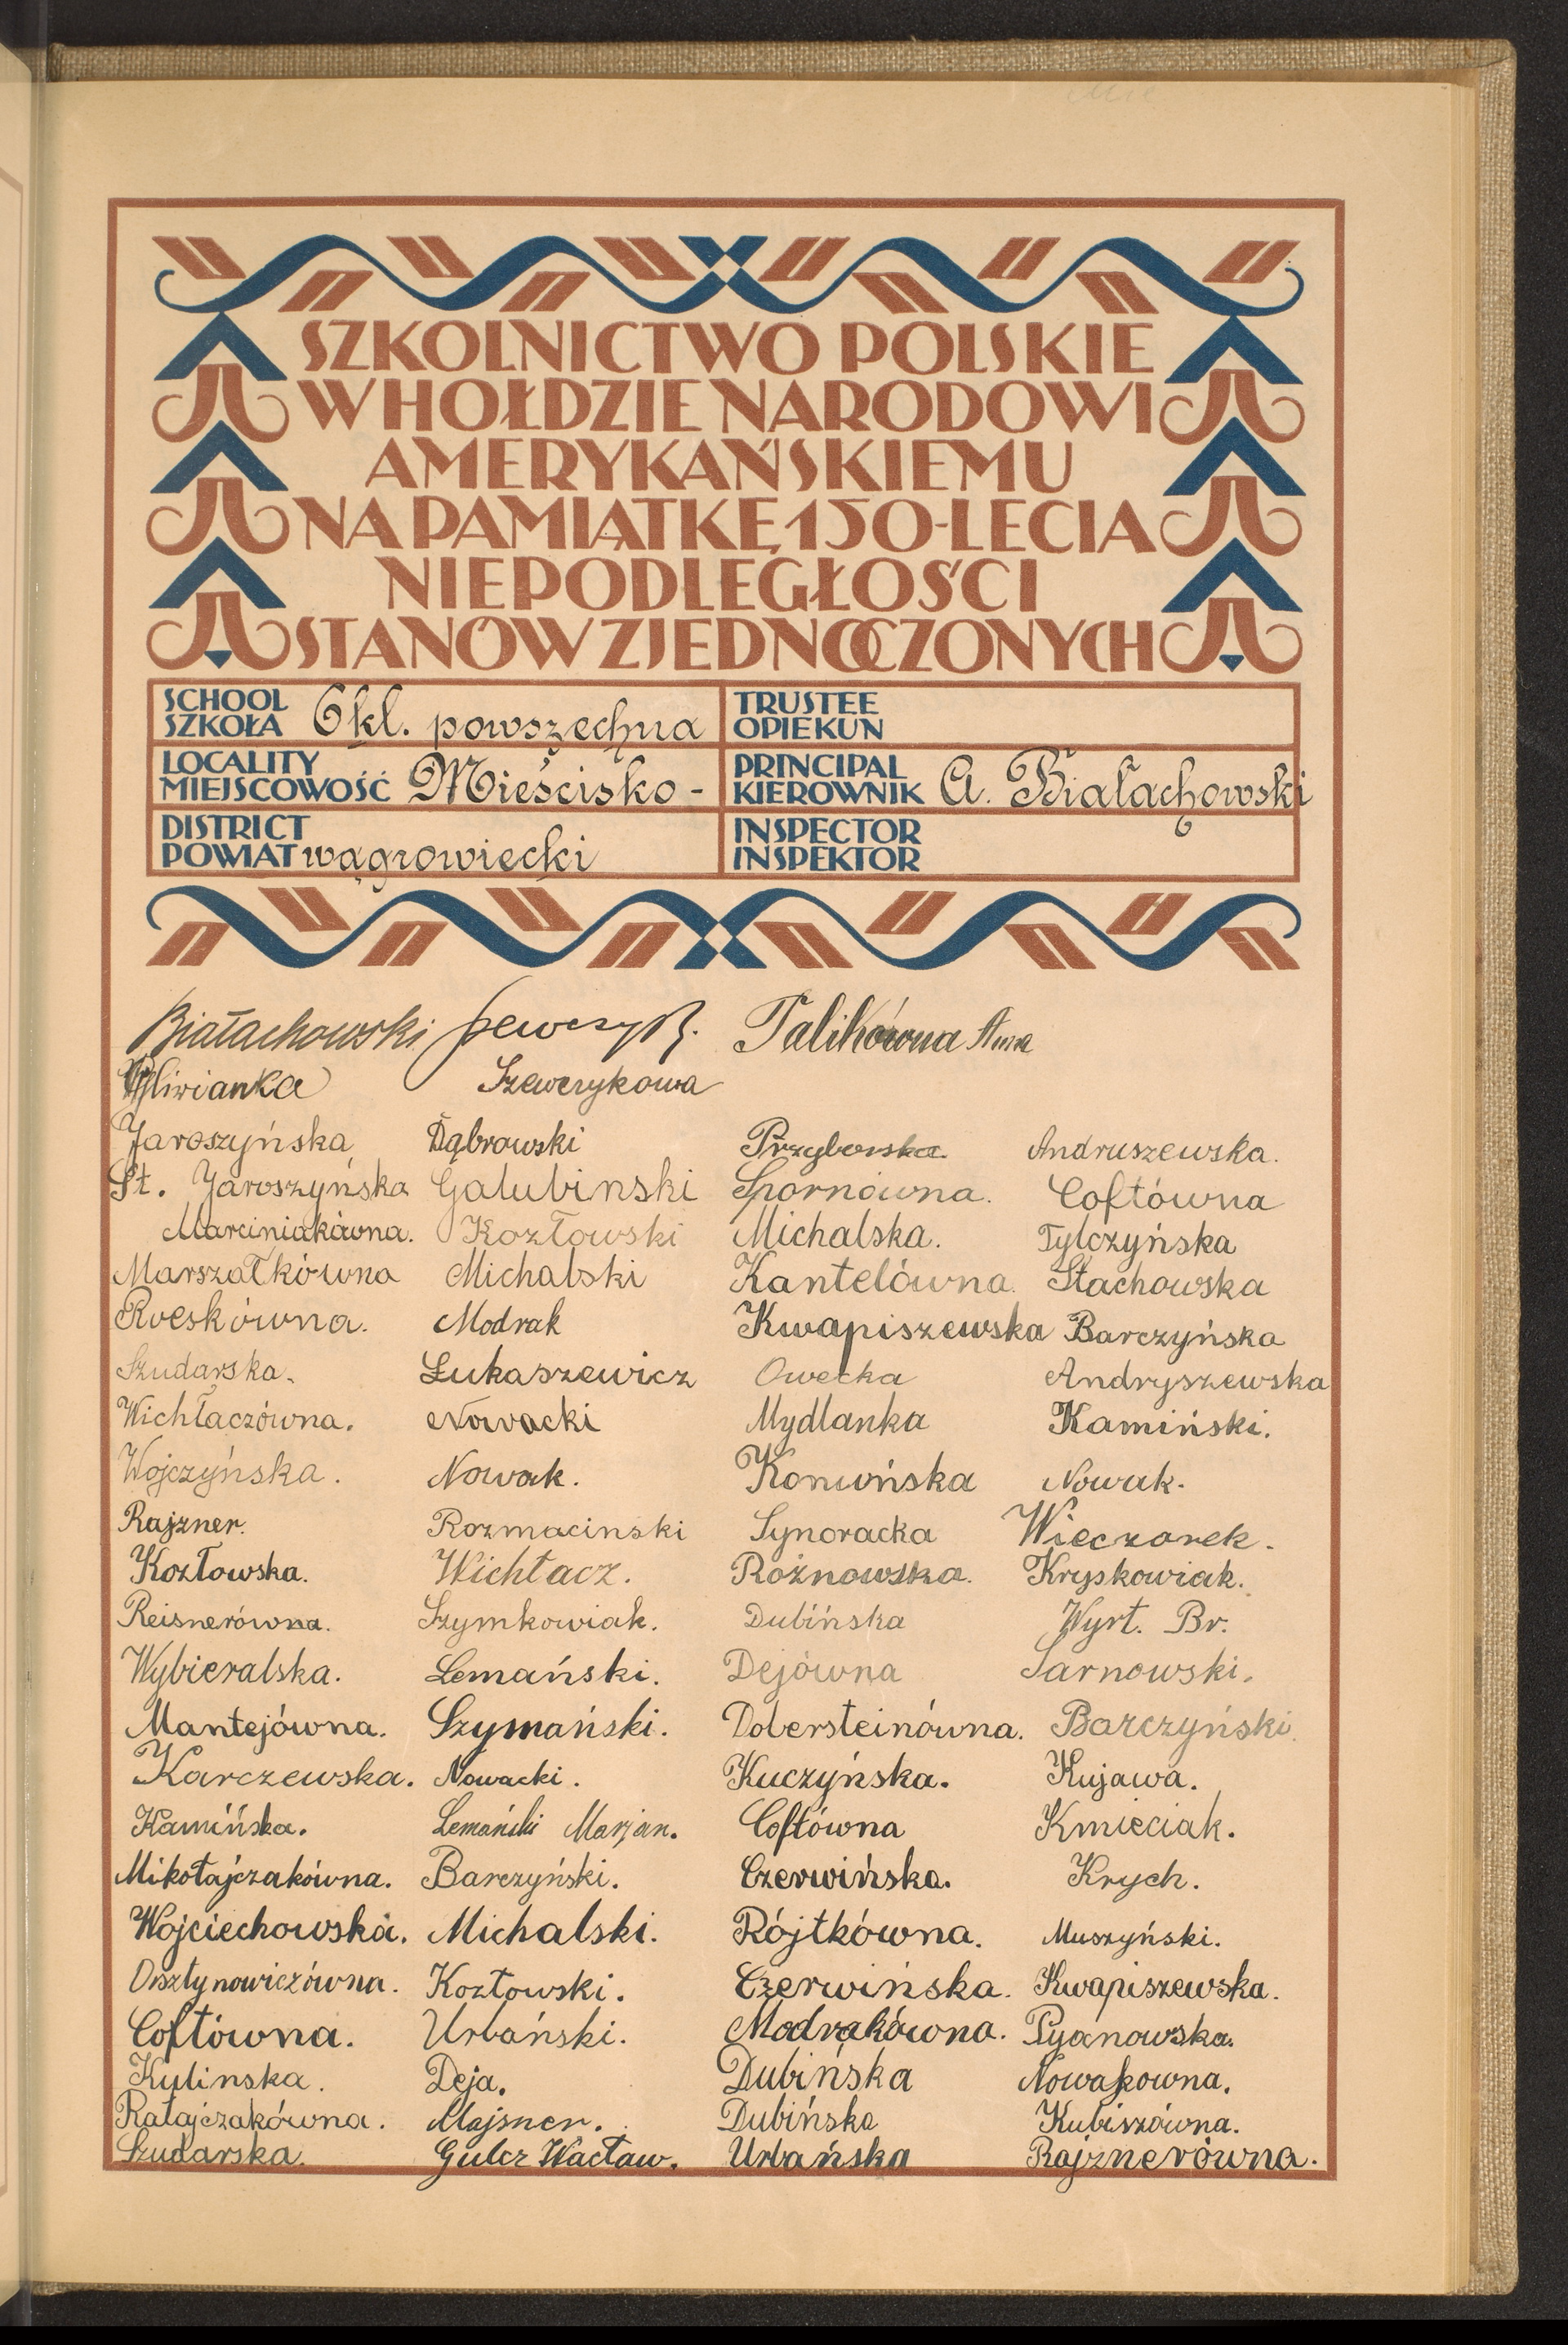 SZKOLNICTWO POLSKIE
W HOŁDZIE NARODOWI
AMERYKAŃSKIEMU
NA PAMIĄTKĘ 150-LECIA
NIEPODLEGŁOŚCI
STANÓW ZJEDNOCZONYCH
SCHOOL SZKOŁA 6kl. powszechna
TRUSTEE OPIEKUN
LOCALITY MIEJSCOWOŚĆ Mieścisko -
PRINCIPAL KIEROWNIK A. Białachowski
DISTRICT POWIAT wągrowiecki
INSPECTOR INSPEKTOR
Białachowski Szewczyk. Talikówna Anna
Szewczykowa
Jaroszyńska Dąbrowski Przyborska. Andruszewska.
St. Jaroszyńska Galubinski Spornówna. Coftówna
Marciniakówna. Kozłowski Michalska. Tylczyńska
Marszałkówna Michalski Kantelówna. Stachowska
Roeskówna. Modrak Kwapiszewska Barczyńska
Szudarska. Łukaszewicz Owecka Andryszewska
Wichłaczówna. Nowacki Mydlanka Kamiński.
Wojczyńska. Nowak. Nowak.
Rajzner. Rozmacinski Synoracka Wieczorek.
Kozłowska. Wichłacz. Rożnowska. Kryskowiak.
Reisnerówna. Szymkowiak. Dubińska Wyrt. Br.
Wybieralska. Lemański. Dejówna Sarnowski.
Mantejówna. Szymański. Dobersteinówna. Barczyński.
Karczewska. Nowacki. Kuczyńska. Kujawa.
Kamińska. Lemański Marjan. Coftówna Kmieciak.
Mikołajczakówna. Barczyński. Czerwińska. Krych.
Wojciechowska. Michalski. Rójtkówna. Muszyński.
Kozłowski. Czerwińska. Kwapiszewska.
Coftówna. Urbański. Modrakówna. Pyanowska.
Kulinska. Deja. Dubińska Nowakowna.
Ratajczakówna. Majsner. Dubińska Kubiszówna.
Szudarska. Gulcz Wacław. Urbańska Rajznerówna.